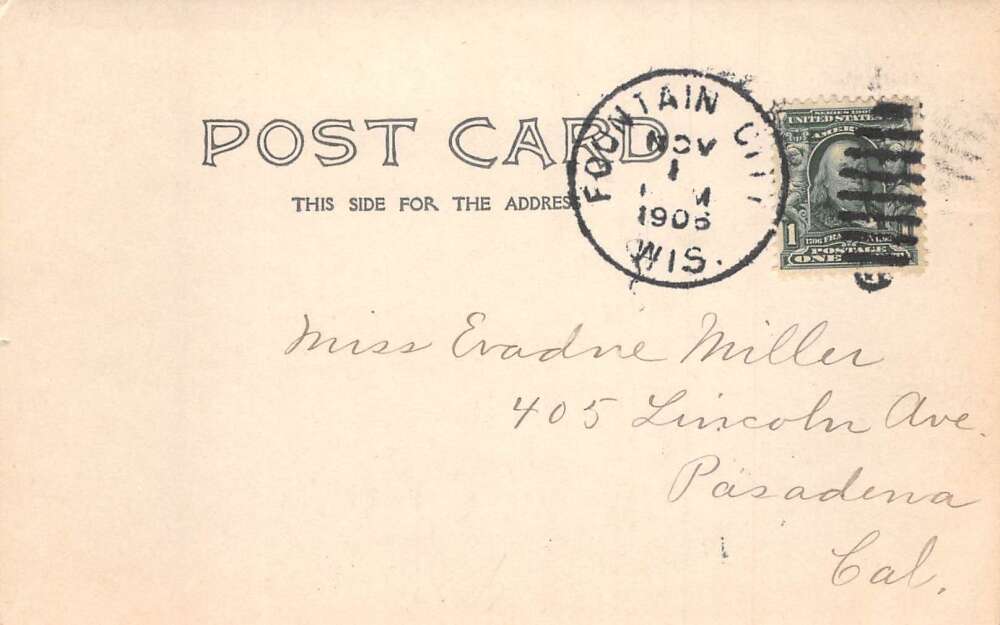 POST CARD
THIS SIDE FOR THE ADDRESS
FOUNTAIN CITY
NOV
1
M
1906
WIS.
SERIES 1902
UNITED STATES
AMER
1
1706 FRA
POSTAGE
ONE
Miss Evadne Miller
405 Lincoln Ave.
Pasadena
Cal.